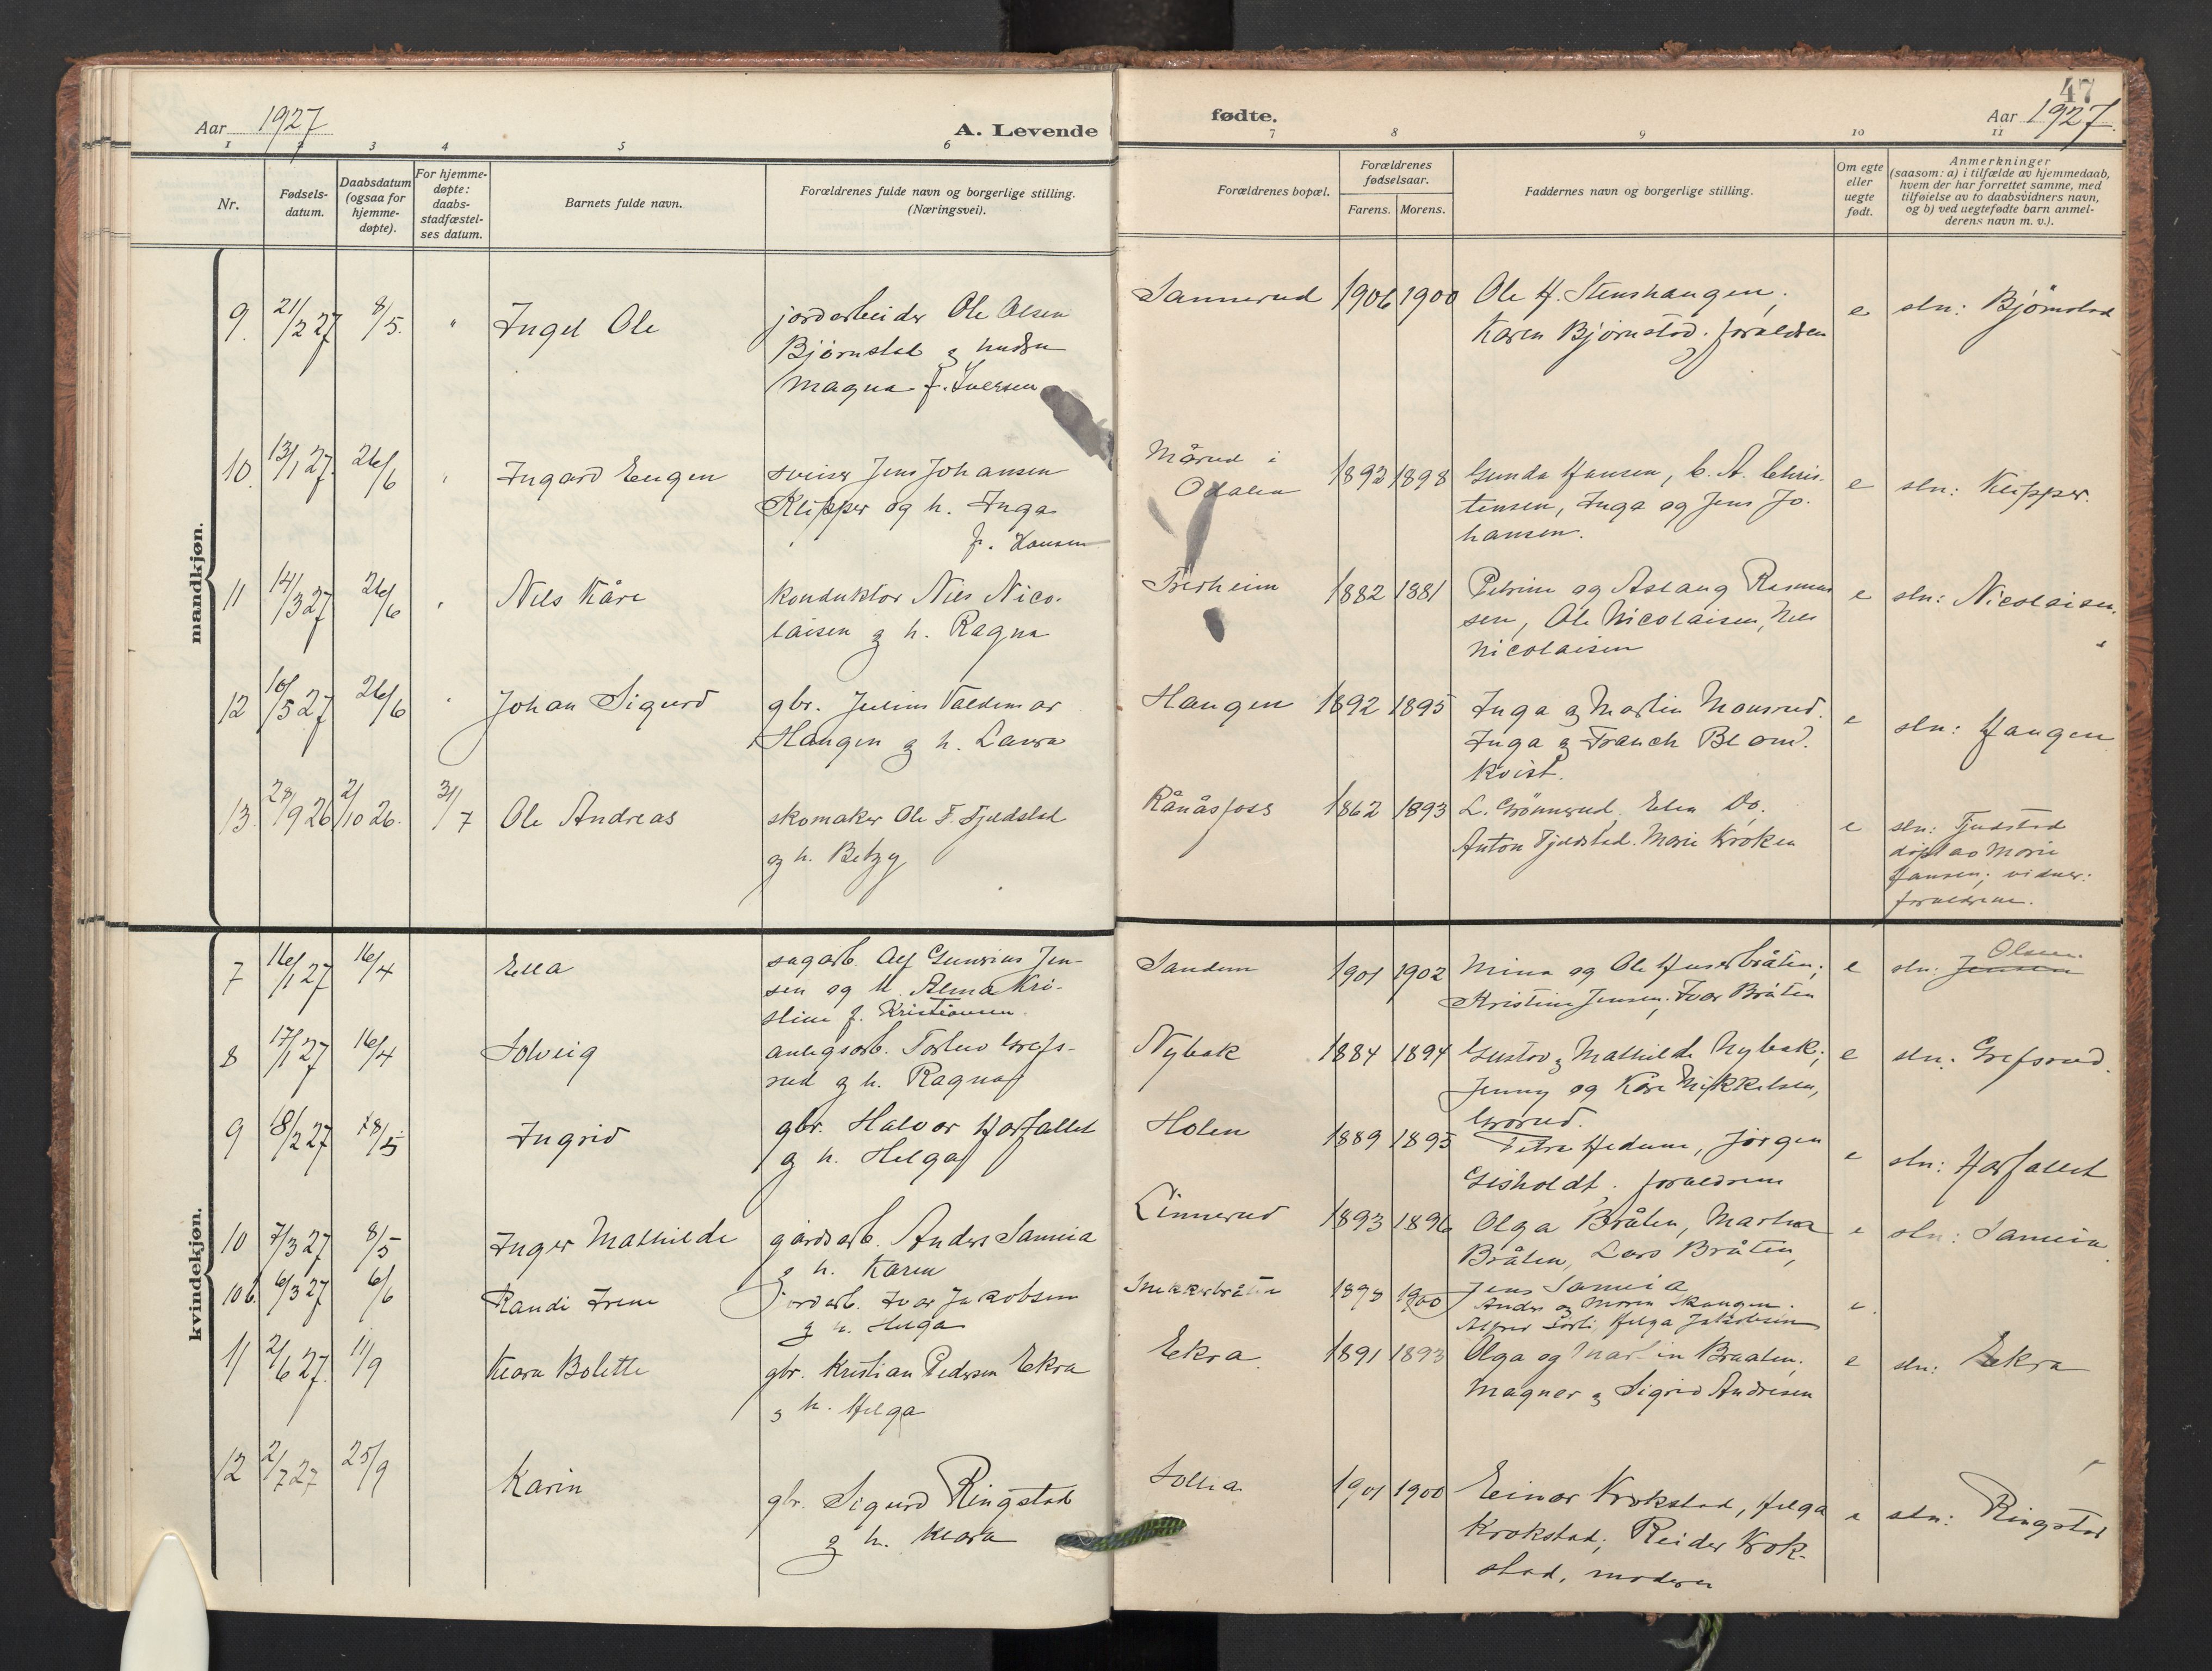 47
Aar 1927
A. Levende
fødte.
Aar 1927.
1 2 3 4 5 6 7 8 9 10 11
Nr.
Fødsels-
datum.
Daabsdatum
(ogsaa for
hjemme-
døpte).
For hjemme-
døpte:
daabs-
stadfæstel-
ses datum.
Barnets fulde navn.
Forældrenes fulde navn og borgerlige stilling.
(Næringsvei).
Forældrenes bopæl.
Forældrenes
fødselsaar.
Farens. Morens.
Faddernes navn og borgerlige stilling.
Om egte
eller
uegte
født.
Anmerkninger
(saasom: a) i tilfælde av hjemmedaab,
hvem der har forrettet samme, med
tilføielse av to daabsvidners navn,
og b) ved uegtefødte barn anmel-
derens navn m. v.).
mandkjøn.
9. 21/2 27 8/5. " Ole
jordarbeider Ole Olsen
Bjørnstad og hustru
Magna f. Iversen
Sannerud 1906 1900
Ole H. Stenshaugen;
Karen Bjørnstad. forældren
e sln: Bjørnstad
10. 13/1 27 26/6 " Ingard Eugen
sveiser Jens Johansen
Klipper og h. Inga
f. Hansen
Mårud i
Odalen
1893 1898
Gunda Hansen, C. A. Chris-
tensen, Inga og Jens Jo-
hansen.
e sln: Klipper.
11 14/3 27 26/6 " Nils Kåre
konduktør Nils Nico-
laisen og h. Ragna
1882 1881
Petrine og Aslaug Rasmus
sen, Ole Nicolaisen, Nils
Nicolaisen
e sln: Nicolaisen.
12 10/5 27 26/6 " Johan Sigurd
gbr. Julius Valdemar
Haugen og h. Laura
Haugen 1892 1895
Inga og Martin Monsrud.
Inga og Franck Blom-
kvist.
e sln: Haugen
13. 28/9 26 2/10 26. 31/7 Ole Andreas
skomaker Ole F. Fjeldstad
og h. Betzy
Rånåsfoss 1862 1893
L. Grønnerud, Do.
Anton Fjeldstad. Marie Kroken
e sln: Fjeldstad
døpt av Marie
Hansen; vidner:
forældrene.
kvindekjøn.
7 16/1 27 16/4 Ella
sagarb. Alf Gunerius Jen-
sen og h. Alma Kri-
stine f. Kristiansen
Sandum 1901 1902
Mina og Ole Huserbråten;
Kristine Jensen, Ivar Bråten
e sln: Jensen Olsen.
8 17/1 27 16/4 Solveig
anlegsarb. Torleiv Grefs-
rud og h. Ragna
Nybak 1884 1894
Gustav og Mathilde Nybak;
Jenny og Kåre Mikkelsen,
Grorud.
e sln: Grefsrud.
9 18/2 27 8/5 Ingrid
gbr. Halvor Horfallet
og h. Helga
Holen 1889 1895
Petra Hedum, Jørgen
Gisholdt, forældrene
e sln: Horfallet
10 7/3 27 8/5 Inger Mathilde
gårdsarb. Anders Samuia
og h. Karen
Linnerud 1893 1896
Olga Bråten, Martha
Bråten, Lars Bråten,
Jens Samuia
e sln: Samuia
10b. 6/3 27 6/6 Randi Irene
jordarb. Ivar Jakobsen
og h. Helga
Snekkerbråten 1898 1900
Anders og Maren Skaugen.
Alfred Sørli, Helga Jakobsen
e.
11 2/6 27. 11/9 Klara Bolette
gbr. Kristian Pedersen Ekra
og h. Helga
Ekra 1891 1893
Olga og Martin Braaten;
Magnor og Sigrid Andresen
e sln: Ekra
12 2/7 27 25/9 Karin
gbr. Sigurd Ringstad
og h. Klara
Sollia 1901 1900
Einar Krokstad, Helga
Krokstad; Reidar Krok-
stad, moderen
e sln: Ringstad